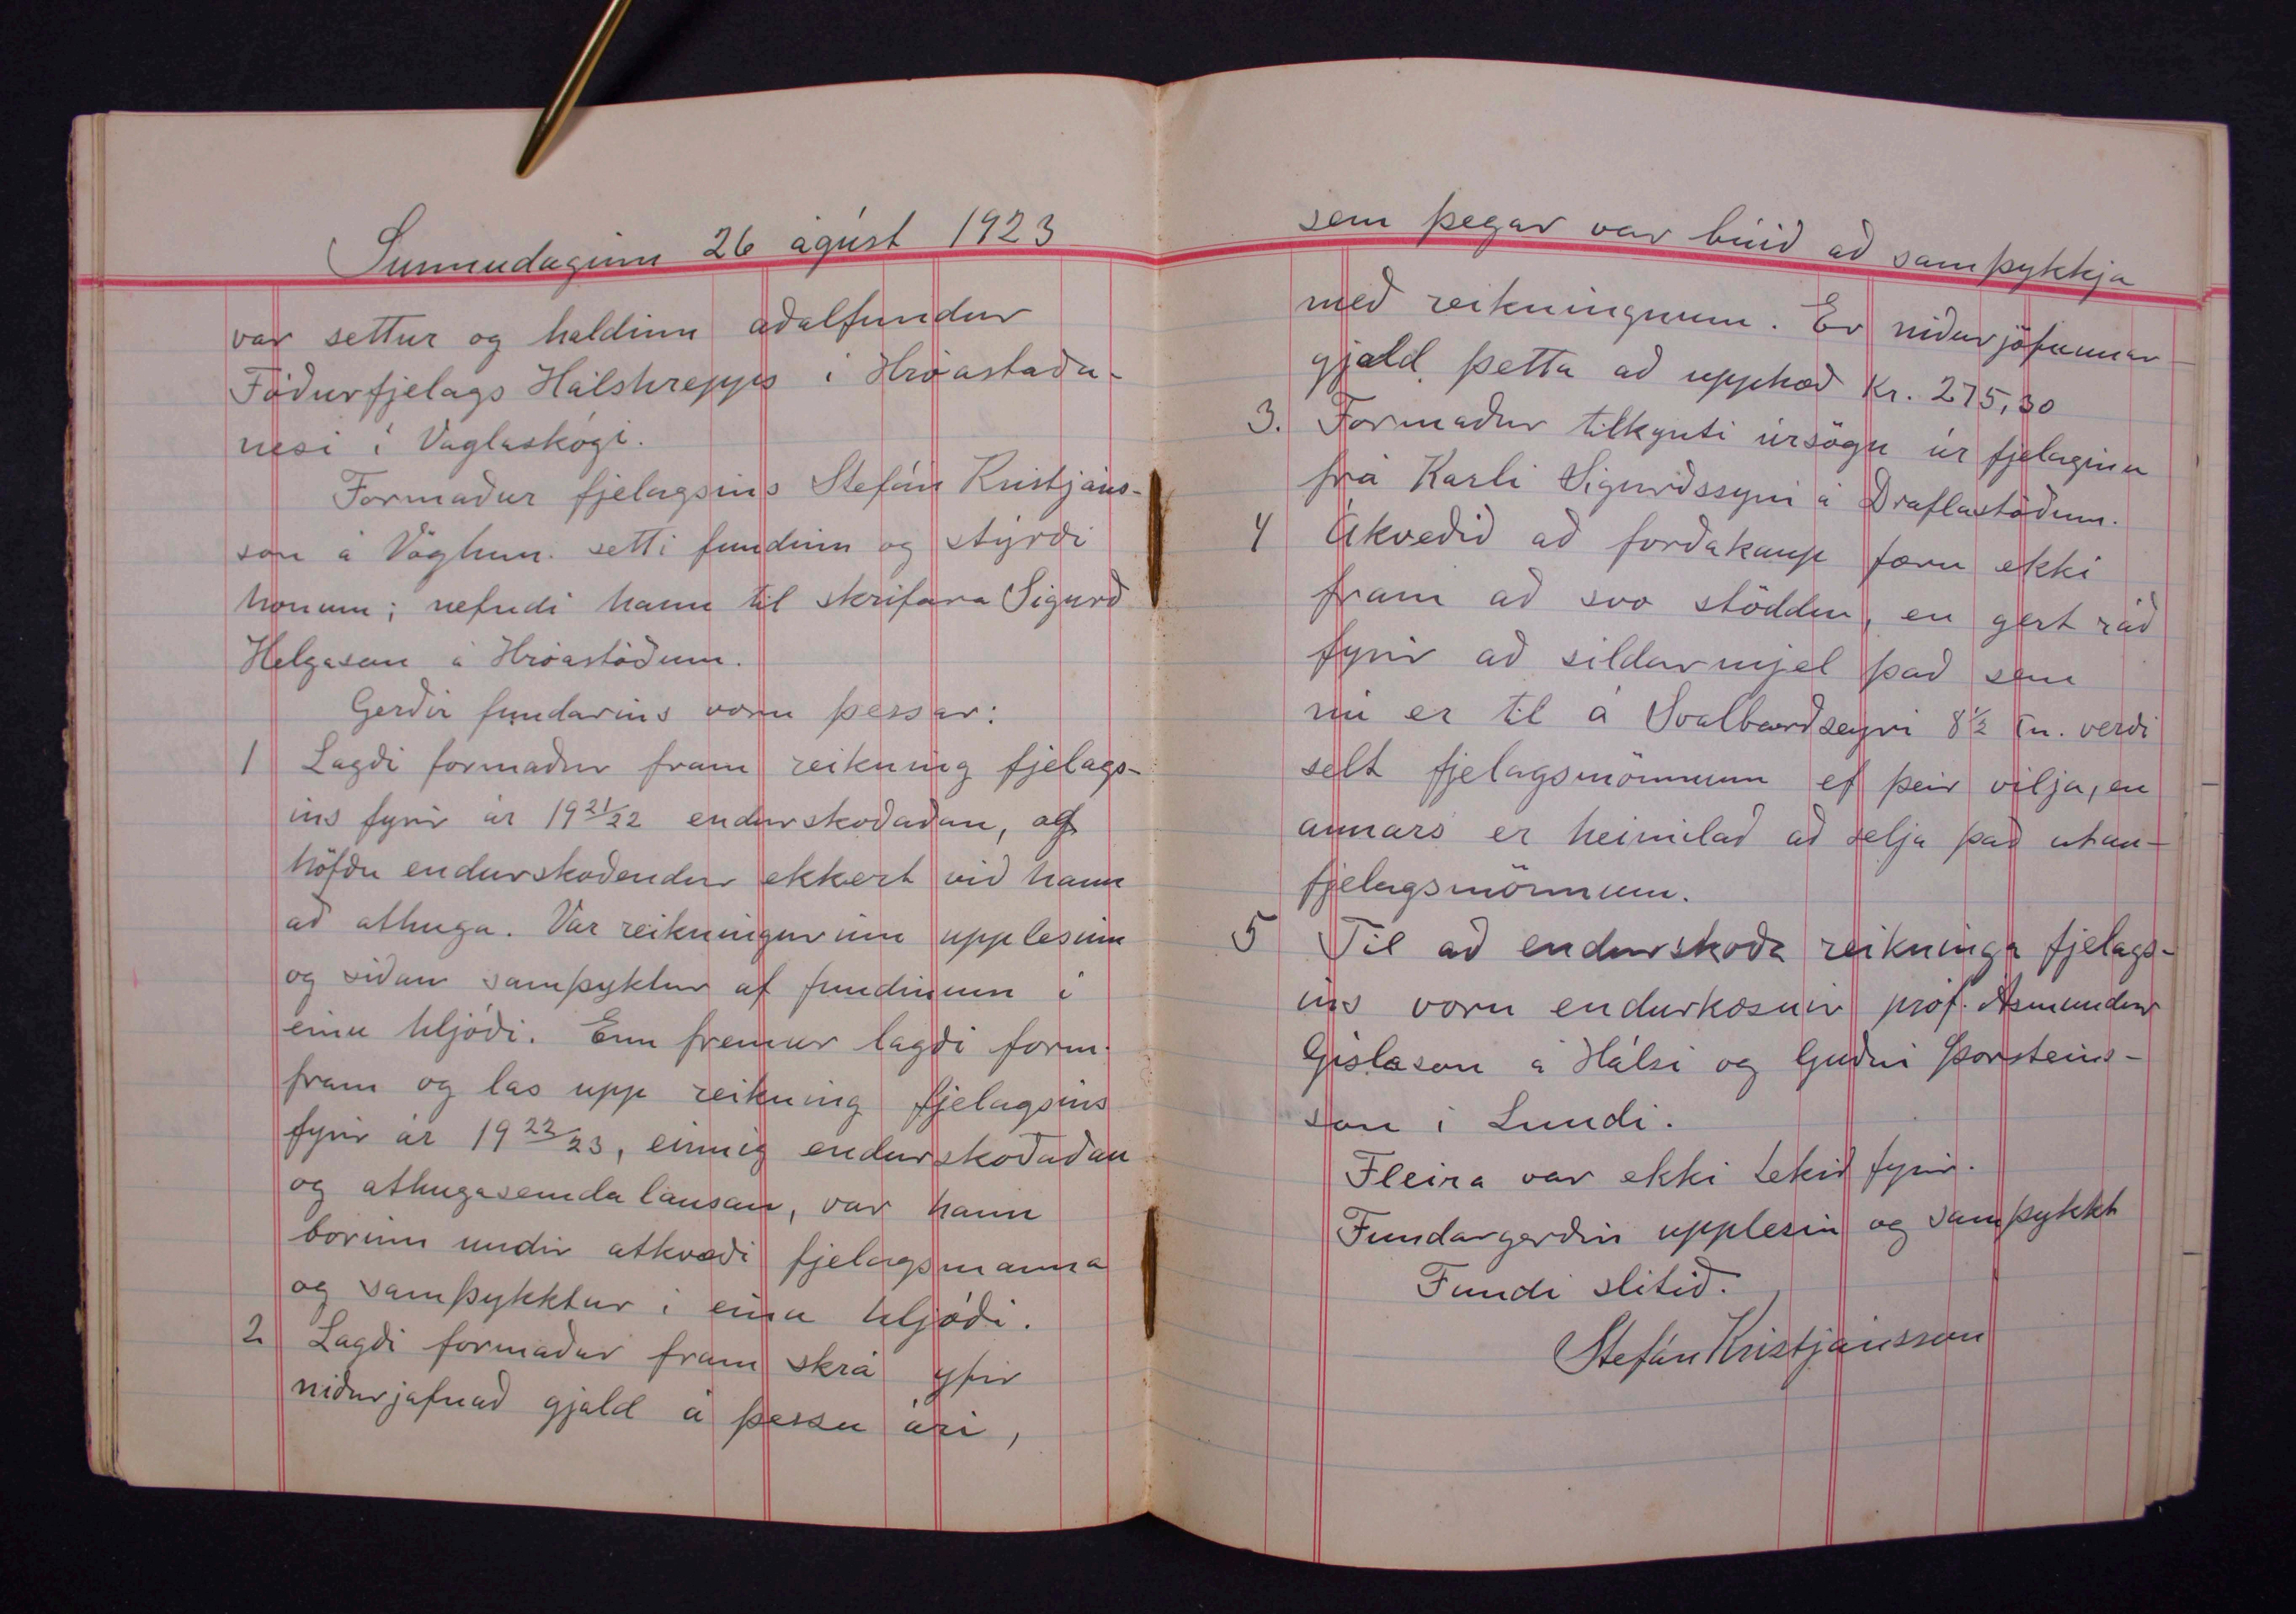 Sunnudaginn 26 ágúst 1923
var settur og haldinn aðalfundur
Fóðurfjelags Hálshrepps í Hróastaða-
nesi í Vaglaskógi.
Formaður fjelagsins Stefán Kristjáns-
son á Vöglum. setti fundinn og stýrði
honum; nefndi hann til skrifara Sigurð
Helgason á Hróastöðum.
Gerðir fundarins voru þessar:
1 Lagði formaður fram reikning fjelags-
ins fyrir ár 1921/22 endurskoðaðan, og
höfðu endurskoðendur ekkert við hann
að athuga. Var reikningurinn upplesinn
og síðan samþyktur af fundinum í
einu hljóði. Enn fremur lagði form.
fram og las upp reikning fjelagsins
fyrir ár 1922/23, einnig endurskoðaðan
og athugasemdalausan, var hann
borinn undir atkvæði fjelagsmanna
og samþykktur í einu hljóði.
2 Lagði formaður fram skrá yfir
niðurjafnað gjald á þessu ári,
sem þegar var búið að samþykkja
með reikningnum. Er niðurjöfnunar-
gjald þetta að upphæð Kr. 275,30
3. Formaður tilkynti úrsögn úr fjelaginu
frá Karli Sigurðssyni á Draflastöðum.
4 Ákveðið að forðakaup færu ekki
fram að svo stöddu, en gert ráð
fyrir að síldarmjel það sem
nú er til á Svalbarðseyri 8 1/2 tn. verði
selt fjelagsmönnum ef þeir vilja, en
annars er heimilað að selja það utan-
fjelagsmönnum.
5 Til að endurskoða reikninga fjelags-
ins voru endurkosnir próf. Ásmundur
Gíslason á Hálsi og Guðni Þorsteins-
son í Lundi.
Fleira var ekki tekið fyrir.
Fundargerðin upplesin og samþykkt
Fundi slitið.
Stefán Kristjánsson